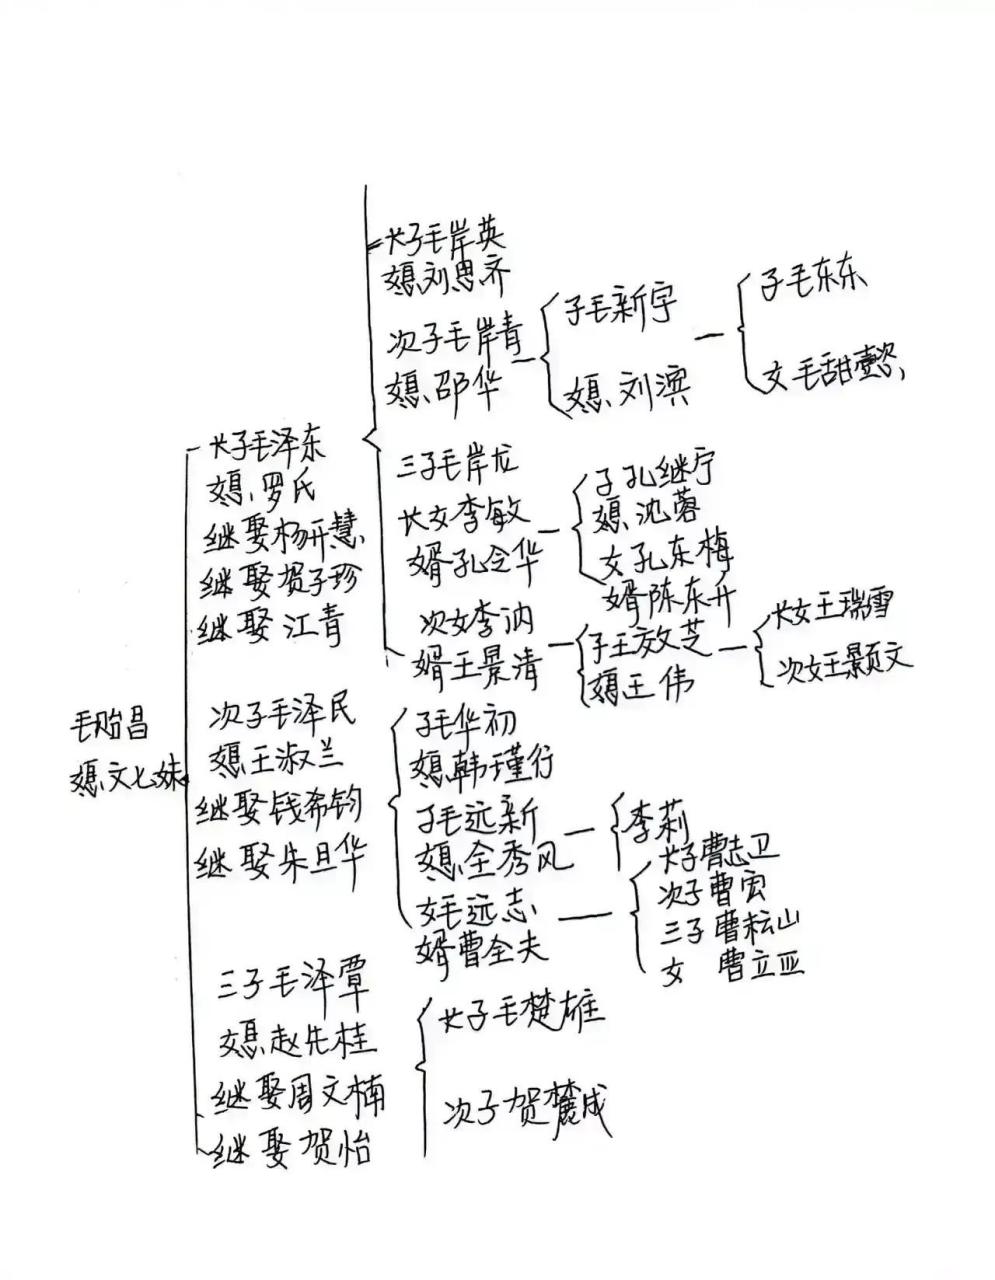 毛贻昌
媳文七妹
长子毛泽东
媳罗氏
继娶杨开慧
继娶贺子珍
继娶江青
长子毛岸英
媳刘思齐
次子毛岸青
媳邵华
子毛新宇
媳刘滨
子毛东东
女毛甜懿
三子毛岸龙
长女李敏
婿孔令华
子孔继宁
媳沈蓉
女孔东梅
婿陈东升
次女李讷
婿王景清
子王效芝
媳王伟
长女王瑞雪
次女王颢文
次子毛泽民
媳王淑兰
继娶钱希钧
继娶朱旦华
子毛华初
媳韩瑾行
子毛远新
媳全秀风
李莉
女毛远志
婿曹全夫
长子曹志卫
次子曹宏
三子曹耘山
女 曹立亚
三子毛泽覃
媳赵先桂
继娶周文楠
继娶贺怡
长子毛楚雄
次子贺麓成